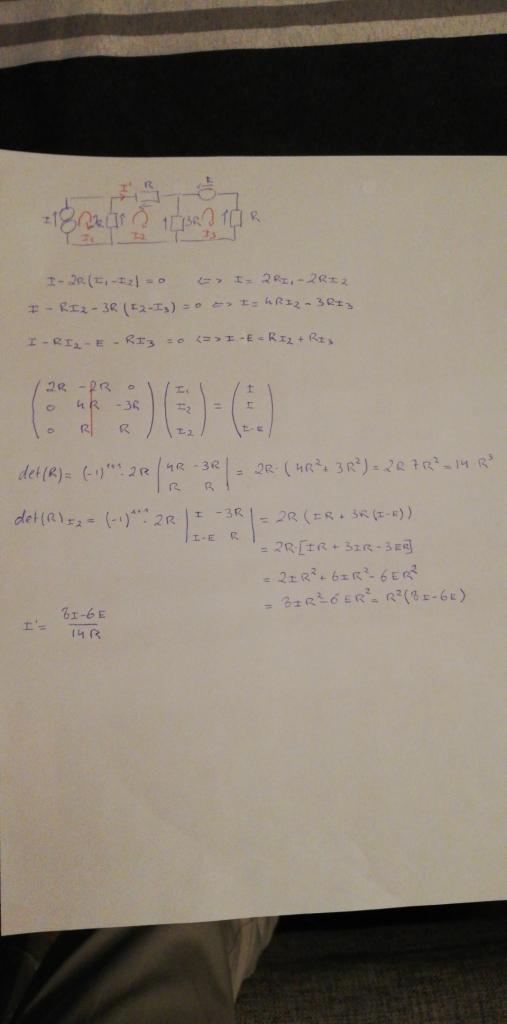 I' R E
I 2R 3R R
I₁ I₂ I₃
I - 2R(I₁-I₂) = 0 <=> I = 2RI₁ - 2RI₂
I - RI₂ - 3R(I₂-I₃) = 0 <=> I = 4RI₂ - 3RI₃
I - RI₂ - E - RI₃ = 0 <=> I - E = RI₂ + RI₃
( 2R -2R 0 ) ( I₁ ) = ( I )
( 0 4R -3R ) ( I₂ ) ( I )
( 0 R R ) ( I₂ ) ( I-E )
det(R) = (-1)¹⁺¹ · 2R | 4R -3R | = 2R · (4R² + 3R²) = 2R 7R² = 14 R³
| R R |
det(R)I₂ = (-1)¹⁺¹ · 2R | I -3R | = 2R (IR + 3R(I-E))
| I-E R |
= 2R·[IR + 3IR - 3ER]
= 2IR² + 6IR² - 6ER²
= 8IR² - 6ER² = R²(8I-6E)
I' = 8I-6E / 14R